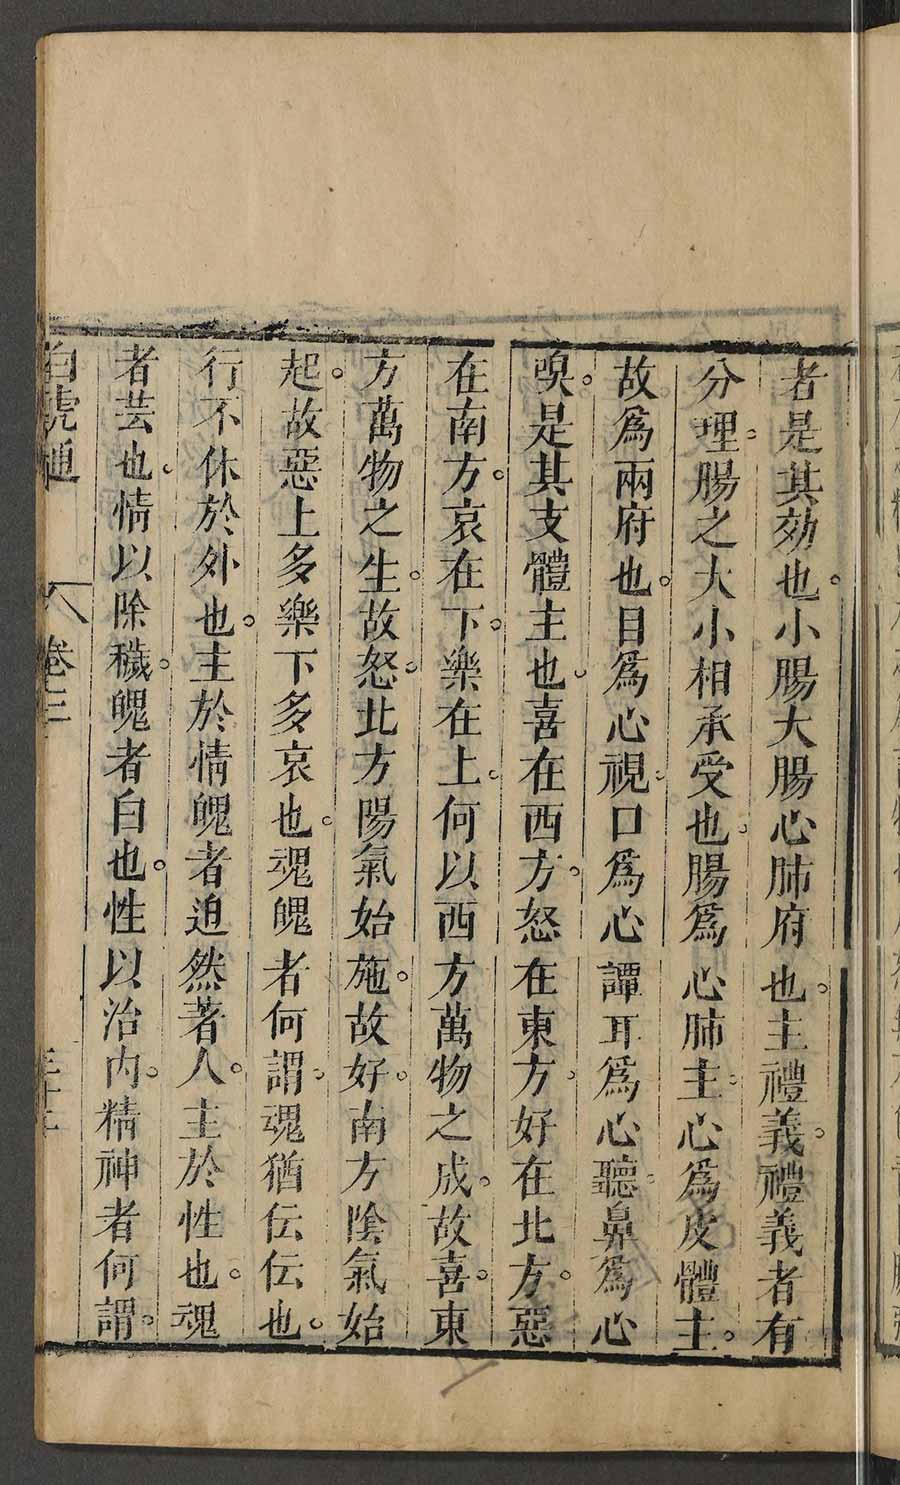 者是其効也。小腸大腸心肺府也。主禮義。禮義者有
分理。腸之大小相承受也。腸爲心肺主。心爲皮體主。
故爲兩府也。目爲心視。口爲心譚耳爲心聽。鼻爲心
嗅。是其支體主也。喜在西方。怒在東方。好在北方。惡
在南方。哀在下。樂在上。何以西方萬物之成。故喜。東
方萬物之生。故怒。北方陽氣始施。故好。南方陰氣始
起。故惡上多樂下多哀也。魂魄者何謂。魂猶伝伝也。
行不休於外也。主於情魄者迫然著人。主於性也。魂
者芸也。情以除穢。魄者白也。性以治内。精神者何謂。
白虎通 卷三